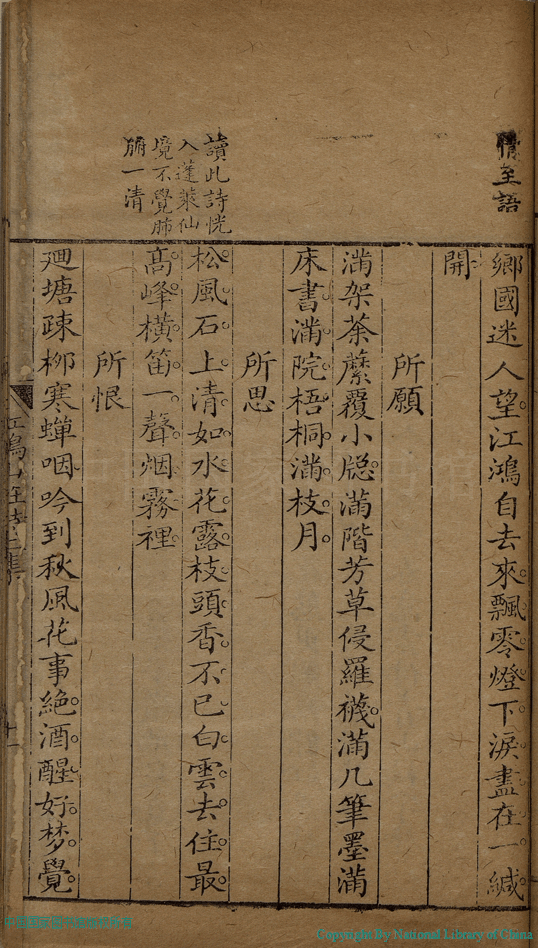 情至語
鄉國迷人望江鴻自去來飄零燈下淚盡在一緘
開
所願
滿架荼蘼覆小牕滿階芳草侵羅襪滿几筆墨滿
床書滿院梧桐滿枝月
所思
讀此詩恍
入蓬萊仙
境不覺肺
腑一清
松風石上清如水花露枝頭香不已白雲去住最
高峰橫笛一聲烟霧裡
所恨
廻塘疎柳寒蟬咽吟到秋風花事絶酒醒好梦覺
Copyright By National Library of China